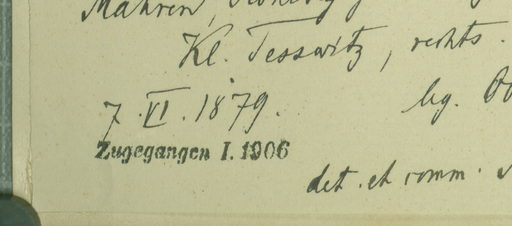 Mähren,
Kl. Tesswitz, rechts.
7. VI. 1879. leg.
Zugegangen I. 1906
det. et comm.